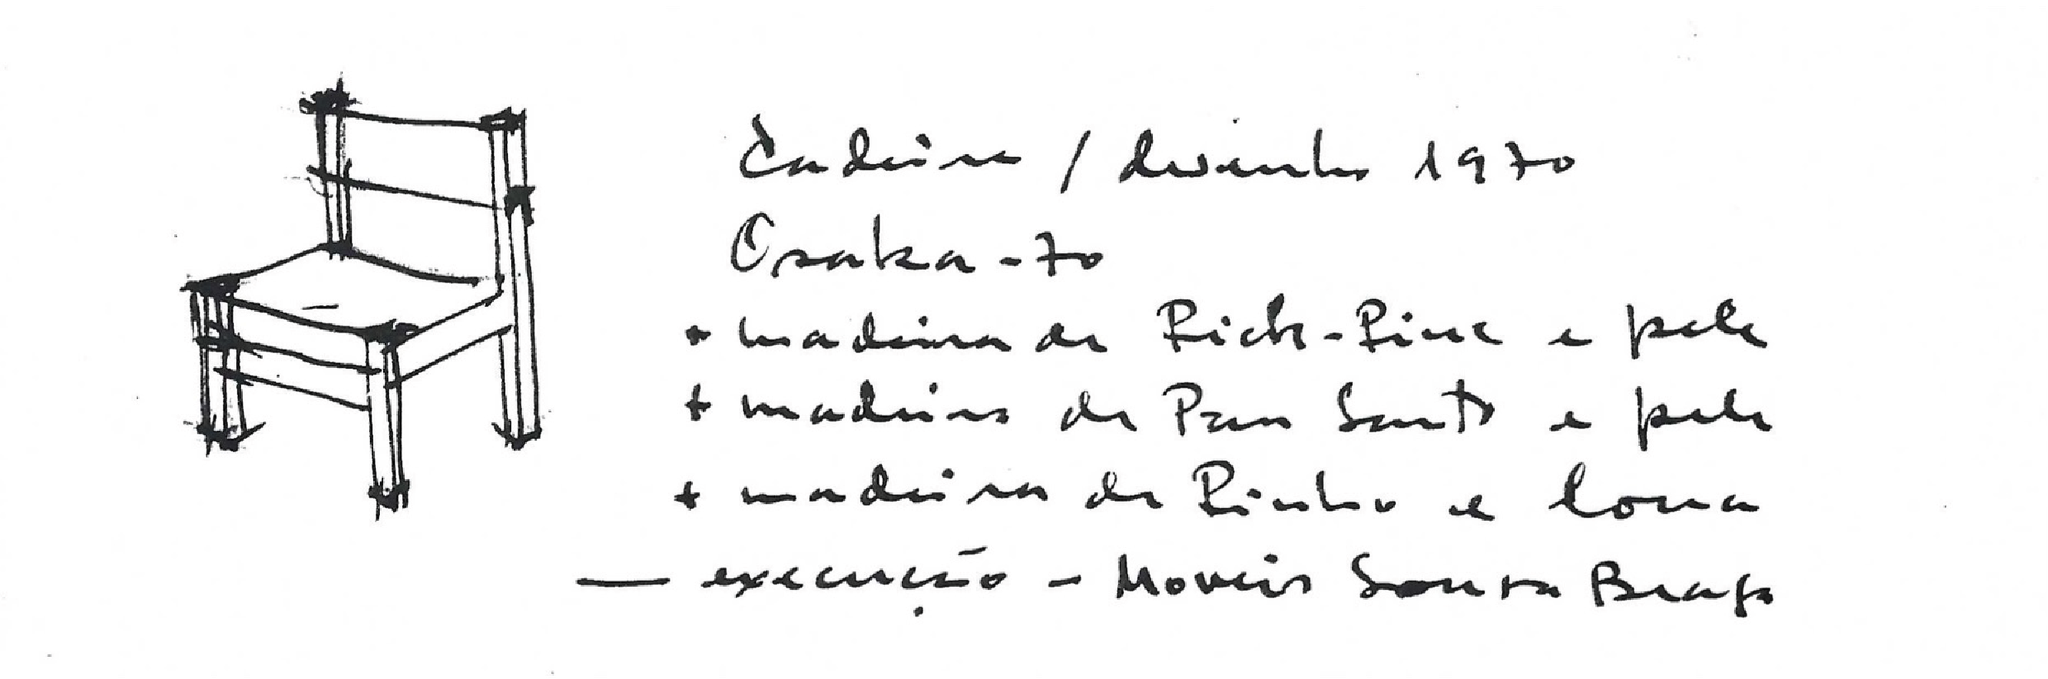 Cadeira / desenho 1970
Osaka-70
+ madeira de Rich-Pine e pele
+ madeira de Pau Santo e pele
+ madeira de Pinho e lona
— execução - Moveis Sousa Braga